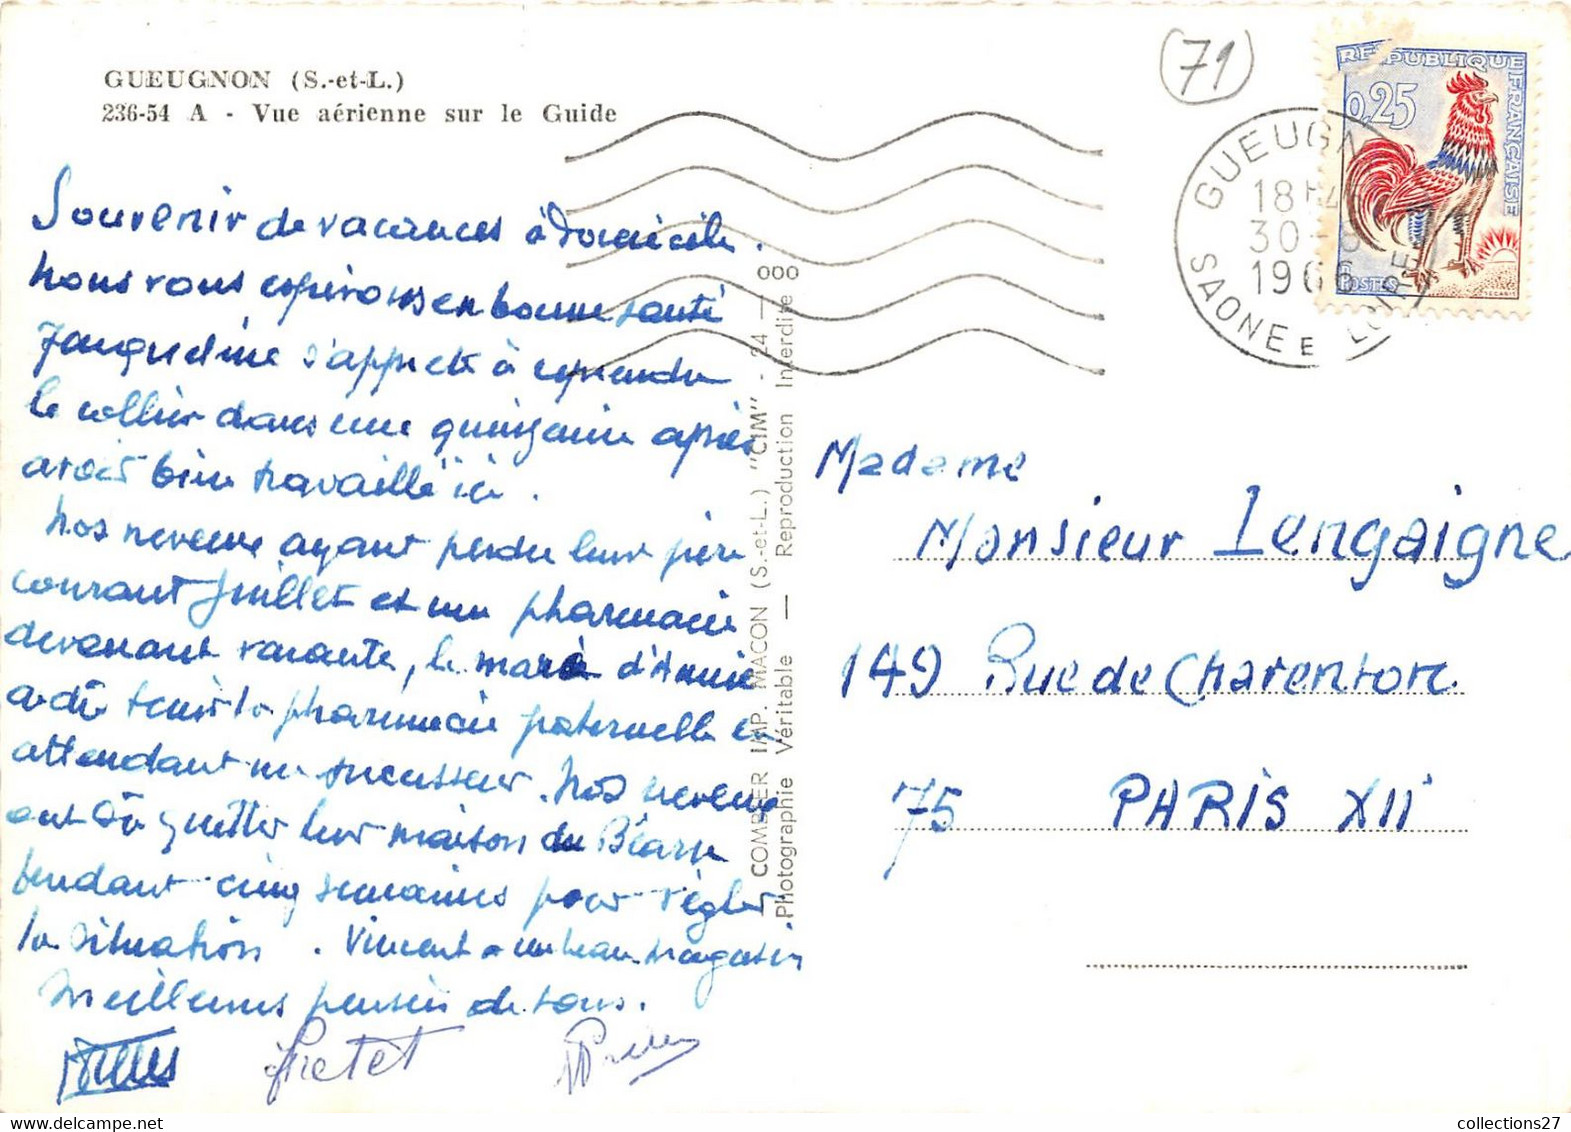 GUEUGNON (S.-et-L.)
236-54 A - Vue aérienne sur le Guide
Souvenir de vacances à domicile.
Nous vous espérons en bonne santé
Jacqueline s'apprête à reprendre
le collier dans une quinzaine après
avoir bien travaillé ici.
Nos neveux ayant perdu leur père
courant Juillet et une pharmacie
devenant vacante, le mari d'Annie
a dû tenir la pharmacie paternelle en
attendant un successeur. Nos neveux
ont dû quitter leur maison du Béarn
pendant cinq semaines pour régler
la situation. Vincent a un beau magasin
Meilleures pensées de tous.
COMBIER IMP. MACON (S.-et-L.) "CIM" - 24 - 000
Photographie Véritable — Reproduction Interdite
(71)
REPUBLIQUE FRANÇAISE
0,25
POSTES
GUEUGN
18H
30-
1966
SAONE ET LOIRE
Madame
Monsieur Lengaigne
149 Rue de Charenton
75 PARIS XII
collections27